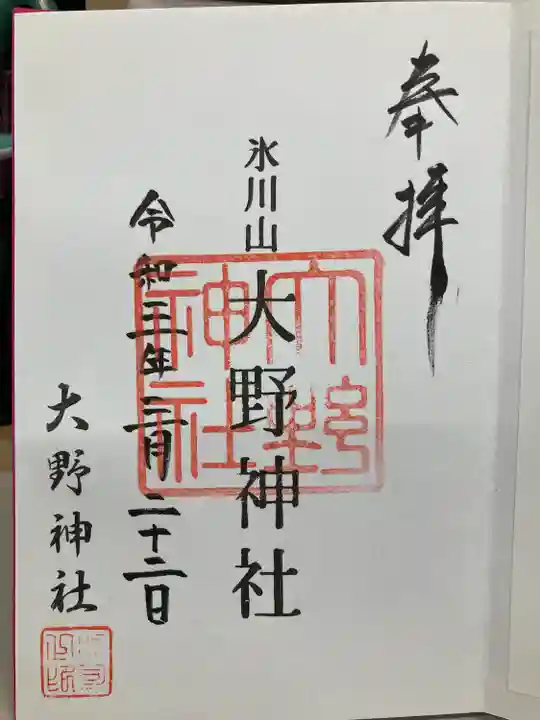 奉拝
氷川山
大野神社
大野神社
令和三年三月二十二日
大野神社